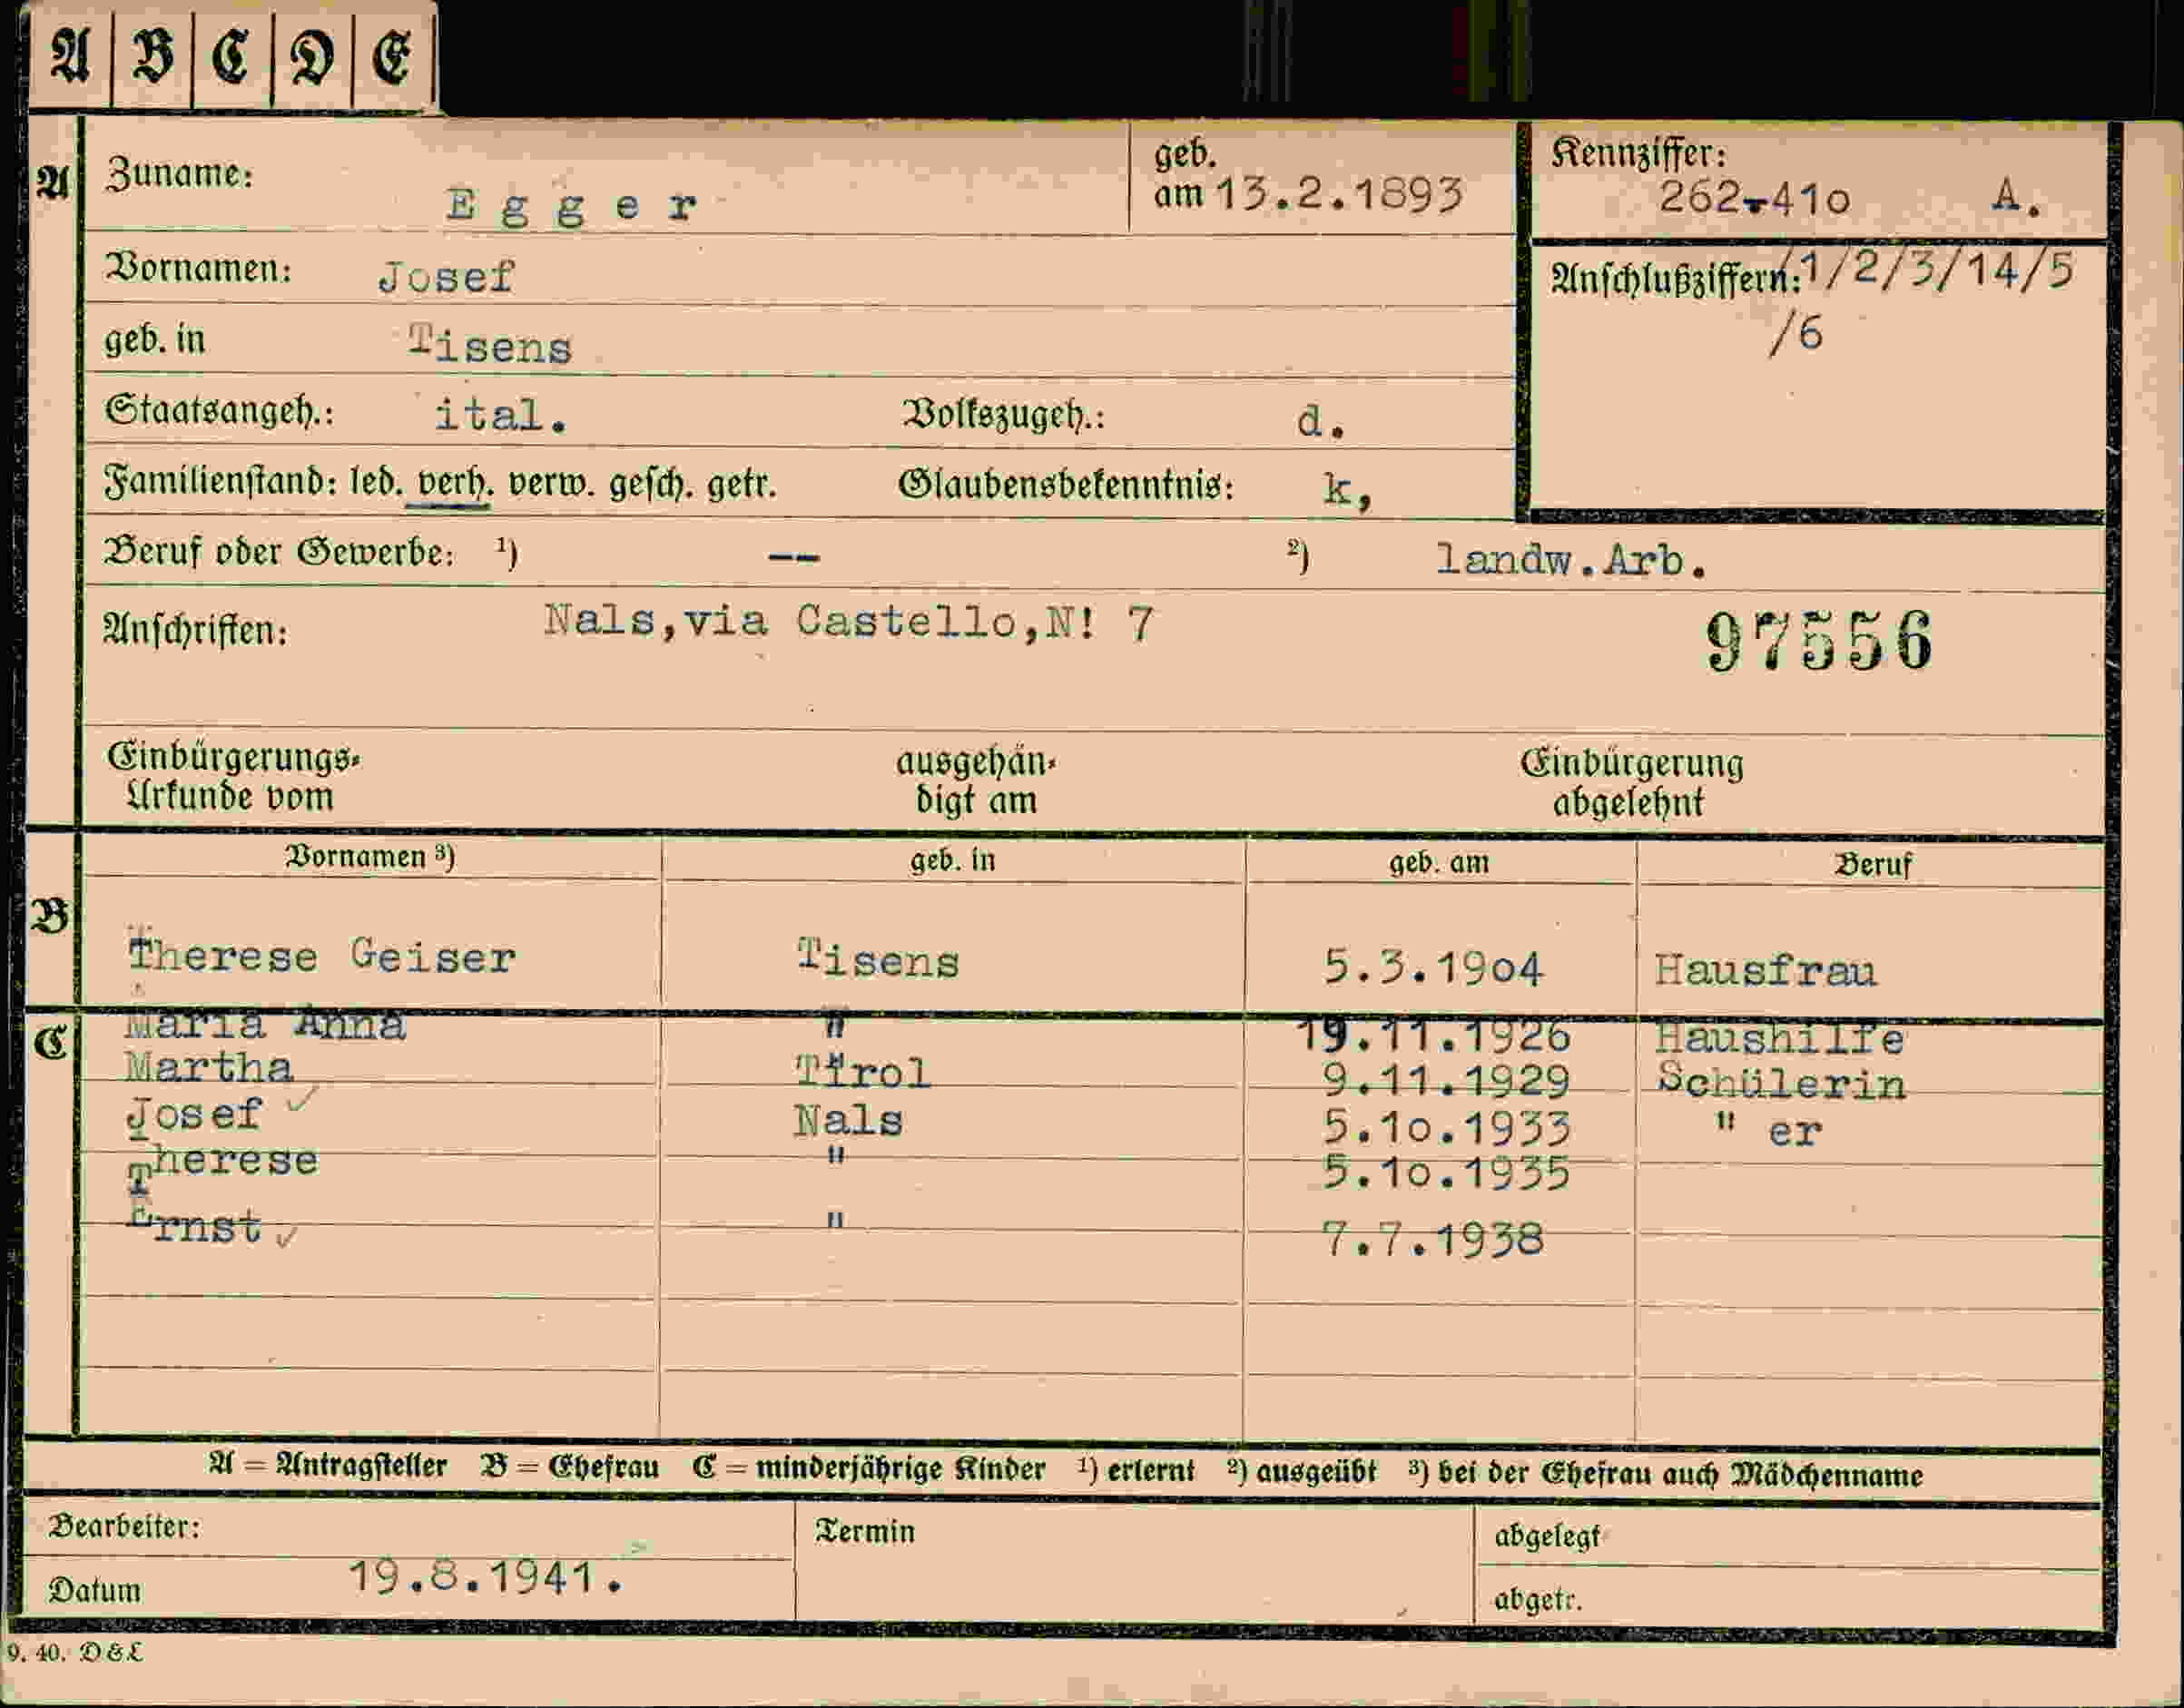 A B C D E
A Zuname: Egger geb. am 13.2.1893 Kennziffer: 262-410 A.
Vornamen: Josef Anschlußziffern: /1/2/3/14/5
/6
geb. in Tisens
Staatsangeh.: ital. Volkszugeh.: d.
Familienstand: led. verh. verw. gesch. getr. Glaubensbekenntnis: k,
Beruf oder Gewerbe: ¹) -- ²) landw.Arb.
Anschriften: Nals,via Castello,N! 7 97556
Einbürgerungs-Urkunde vom ausgehändigt am Einbürgerung abgelehnt
Vornamen ³) geb. in geb. am Beruf
B Therese Geiser Tisens 5.3.1904 Hausfrau
C Maria Anna " 19.11.1926 Haushilfe
Martha Tirol 9.11.1929 Schülerin
Josef ✓ Nals 5.10.1933 " er
Therese " 5.10.1935
Ernst ✓ " 7.7.1938
A = Antragsteller B = Ehefrau C = minderjährige Kinder ¹) erlernt ²) ausgeübt ³) bei der Ehefrau auch Mädchenname
Bearbeiter: Termin abgelegt
Datum 19.8.1941. abgetr.
9. 40. D & L